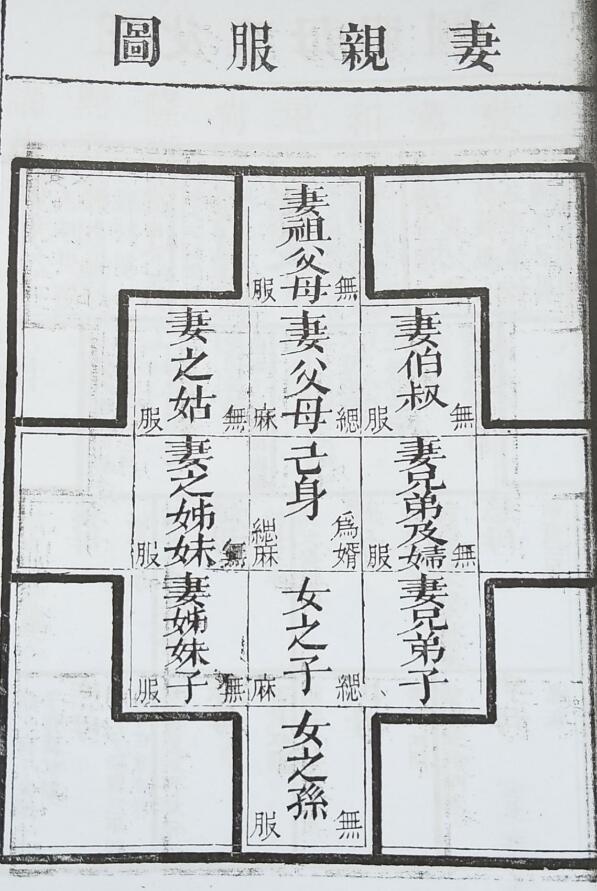 妻親服圖
妻祖父母
無服
妻伯叔
無服
妻父母
緦麻
妻之姑
無服
妻兄弟及婦
無服
己身
為婿緦麻
妻之姊妹
無服
妻兄弟子
女之子
緦麻
妻姊妹子
無服
女之孫
無服